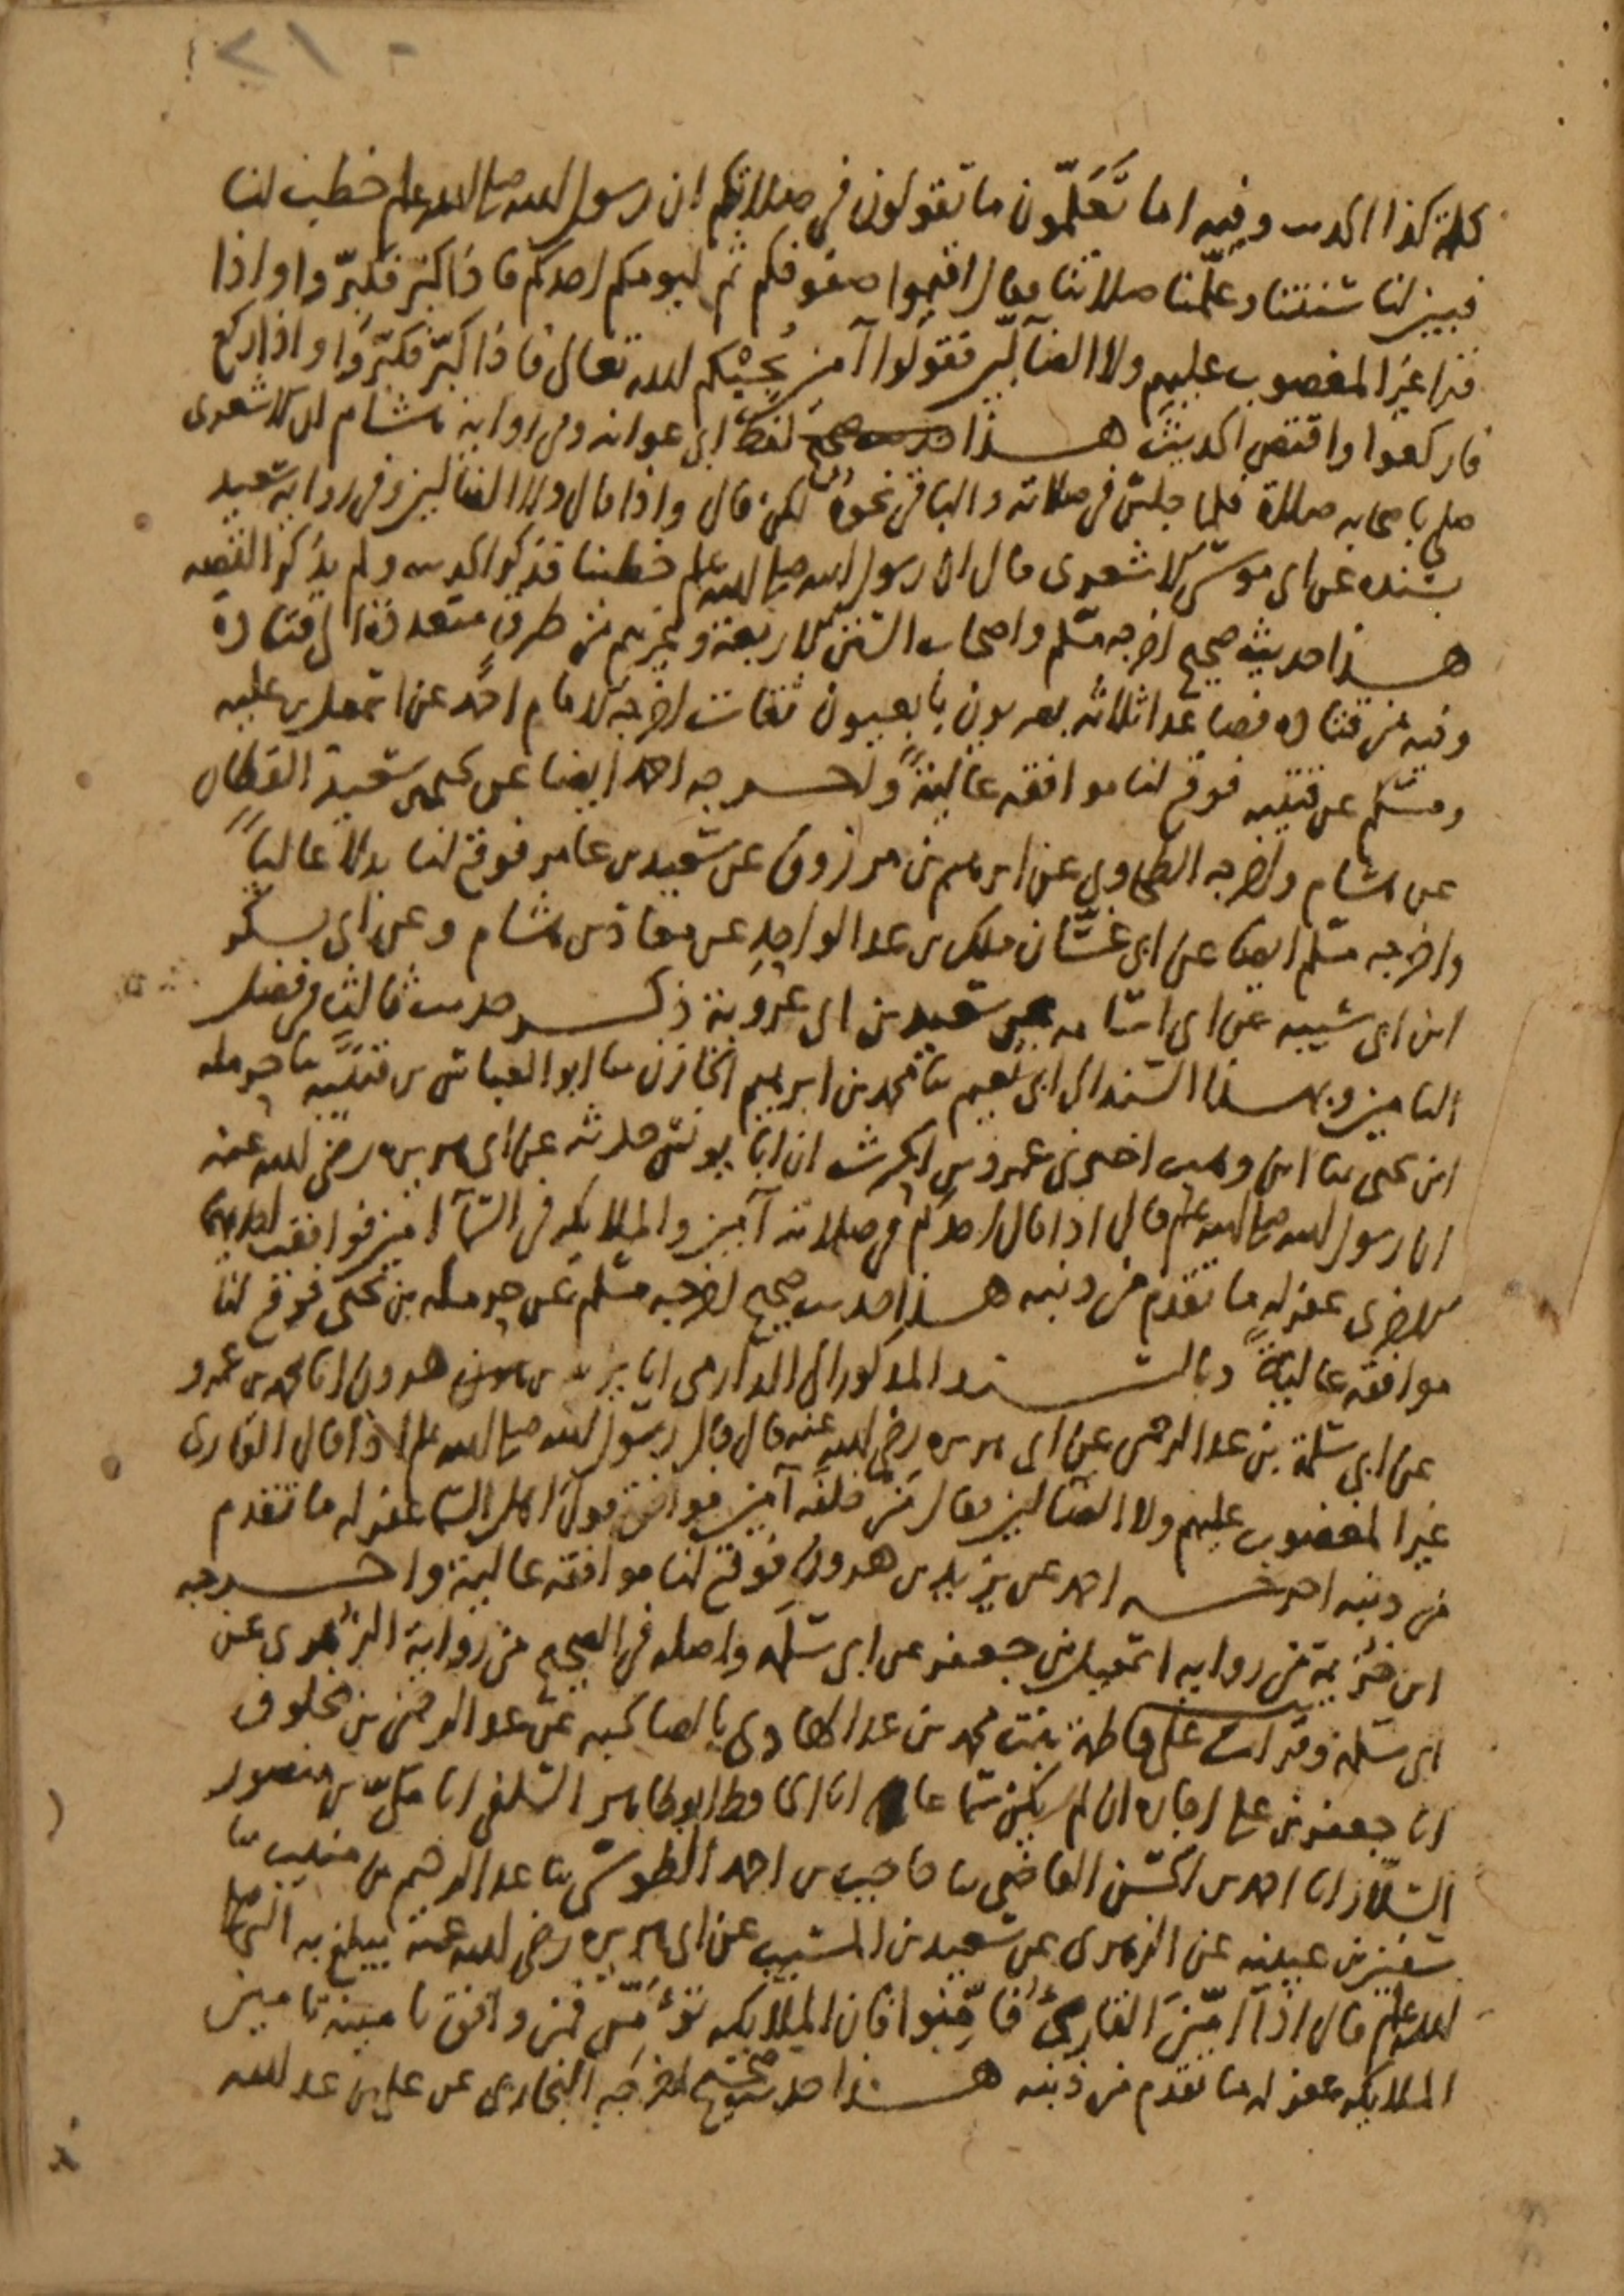 كلمة كذا الحديث وفيه اما تَعَلَّمون ما تقولون في صلاتكم ان رسول الله صلى الله عليه وسلم خطب لنا
فبين لنا سنتنا وعلمنا صلاتنا فقال اقيموا صفوفكم ثم ليومكم احدكم فاذا كبر فكبروا واذا
قرا غير المغضوب عليهم ولا الضآلين فقولوا آمين يُجِبْكم الله تعالى فاذا كبّر فكبّروا واذا ركع
فاركعوا واقتص الحديث هذا لفظ ابي عوانه وفي رواية هشام ان الاشعرى
صلى باصحابه صلاة فلما جلس في صلاته والباقي نحوه لكن قال واذا قال ولا الضالين وفي رواية سعيد
بسنده عن ابي موسى الاشعرى قال ان رسول الله صلى الله عليه وسلم خطبنا فذكر الحديث ولم يذكر القصه
هذا حديث صحيح اخرجه مسلم واصحاب السنن الاربعة وغيرهم من طرق متعددة الى قتادة
وفيه من قتاده فصاعدا ثلاثه بصريون تابعيون ثقات اخرجه الامام احمد عن اسمعيل بن عليه
ومسلم عن قتيبه فوقع لنا موافقه عاليةً واخرجه احمد ايضا عن يحيى بن سعيد القطان
عن هشام واخرجه الطحاوي عن ابرهيم بن مرزوق عن سعيد بن عامر فوقع لنا بدلا عالياً
واخرجه مسلم ايضا عن ابي غسَّان ملك بن عبد الواحد عن معاذ بن هشام وعن ابي بكر
ابن ابي شيبه عن ابي اسامه عن سعيد بن ابي عروبة ذكر حديث ثالث في فضل
التامين وبهذا السند الى ابي نعيم ثنا محمد بن ابرهيم الخازن ثنا ابو العباس بن قتيبه ثنا حرمله
ابن يحيى ثنا ابن وهب اخبرني عمرو بن الحرث ان ابا يونس حدثه عن ابي هريره رضي الله عنه
ان رسول الله صلى الله عليه وسلم قال اذا قال احدكم في صلاته آمين والملايكه في السّمآ امين فوافقت احداهما
الاخرى غفر له ما تقدم من ذنبه هذا حديث صحيح اخرجه مسلم عن حرمله بن يحيى فوقع لنا
موافقه عاليةً وبالسند المذكور الى الدارمي انا يزيد بن هرون انا محمد بن عمرو
عن ابي سلمة بن عبد الرحمن عن ابي هريره رضي الله عنه قال قال رسول الله صلى الله عليه وسلم اذا قال القارى
غير المغضوب عليهم ولا الضالين فقال من خلفه آمين فوافق قوله اهل السما غفر له ما تقدم
من ذنبه اخرجه احمد عن يزيد بن هرون فوقع لنا موافقة عالية واخرجه
ابن خزيمة من رواية اسمعيل بن جعفر عن ابي سلمه واصله في الصحيح من رواية الزهرى عن
ابي سلمه وقرات على فاطمة بنت محمد بن عبد الهادى بالصالحيه عن عبد الرحمن بن مخلوف
انا جعفر بن علي اجازه ان لم يكن سماعا انا الحافظ ابو طاهر السلفي انا مكي بن منصور
السّلّار انا احمد بن الحسن القاضي ثنا حاجب بن احمد الطوسي ثنا عبد الرحيم بن منيب ثنا
سفين بن عيينه عن الزهرى عن سعيد بن المسيب عن ابي هريره رضي الله عنه يبلغ به النبي صلى
الله عليه وسلم قال اذا اَمّنَ القارِئُ فامِّنوا فان الملايكه تؤَمّن فمن وافق تامينه تامين
الملايكه غفر له ما تقدم من ذنبه هذا حديث صحيح اخرجه البخارى عن علي بن عبد الله